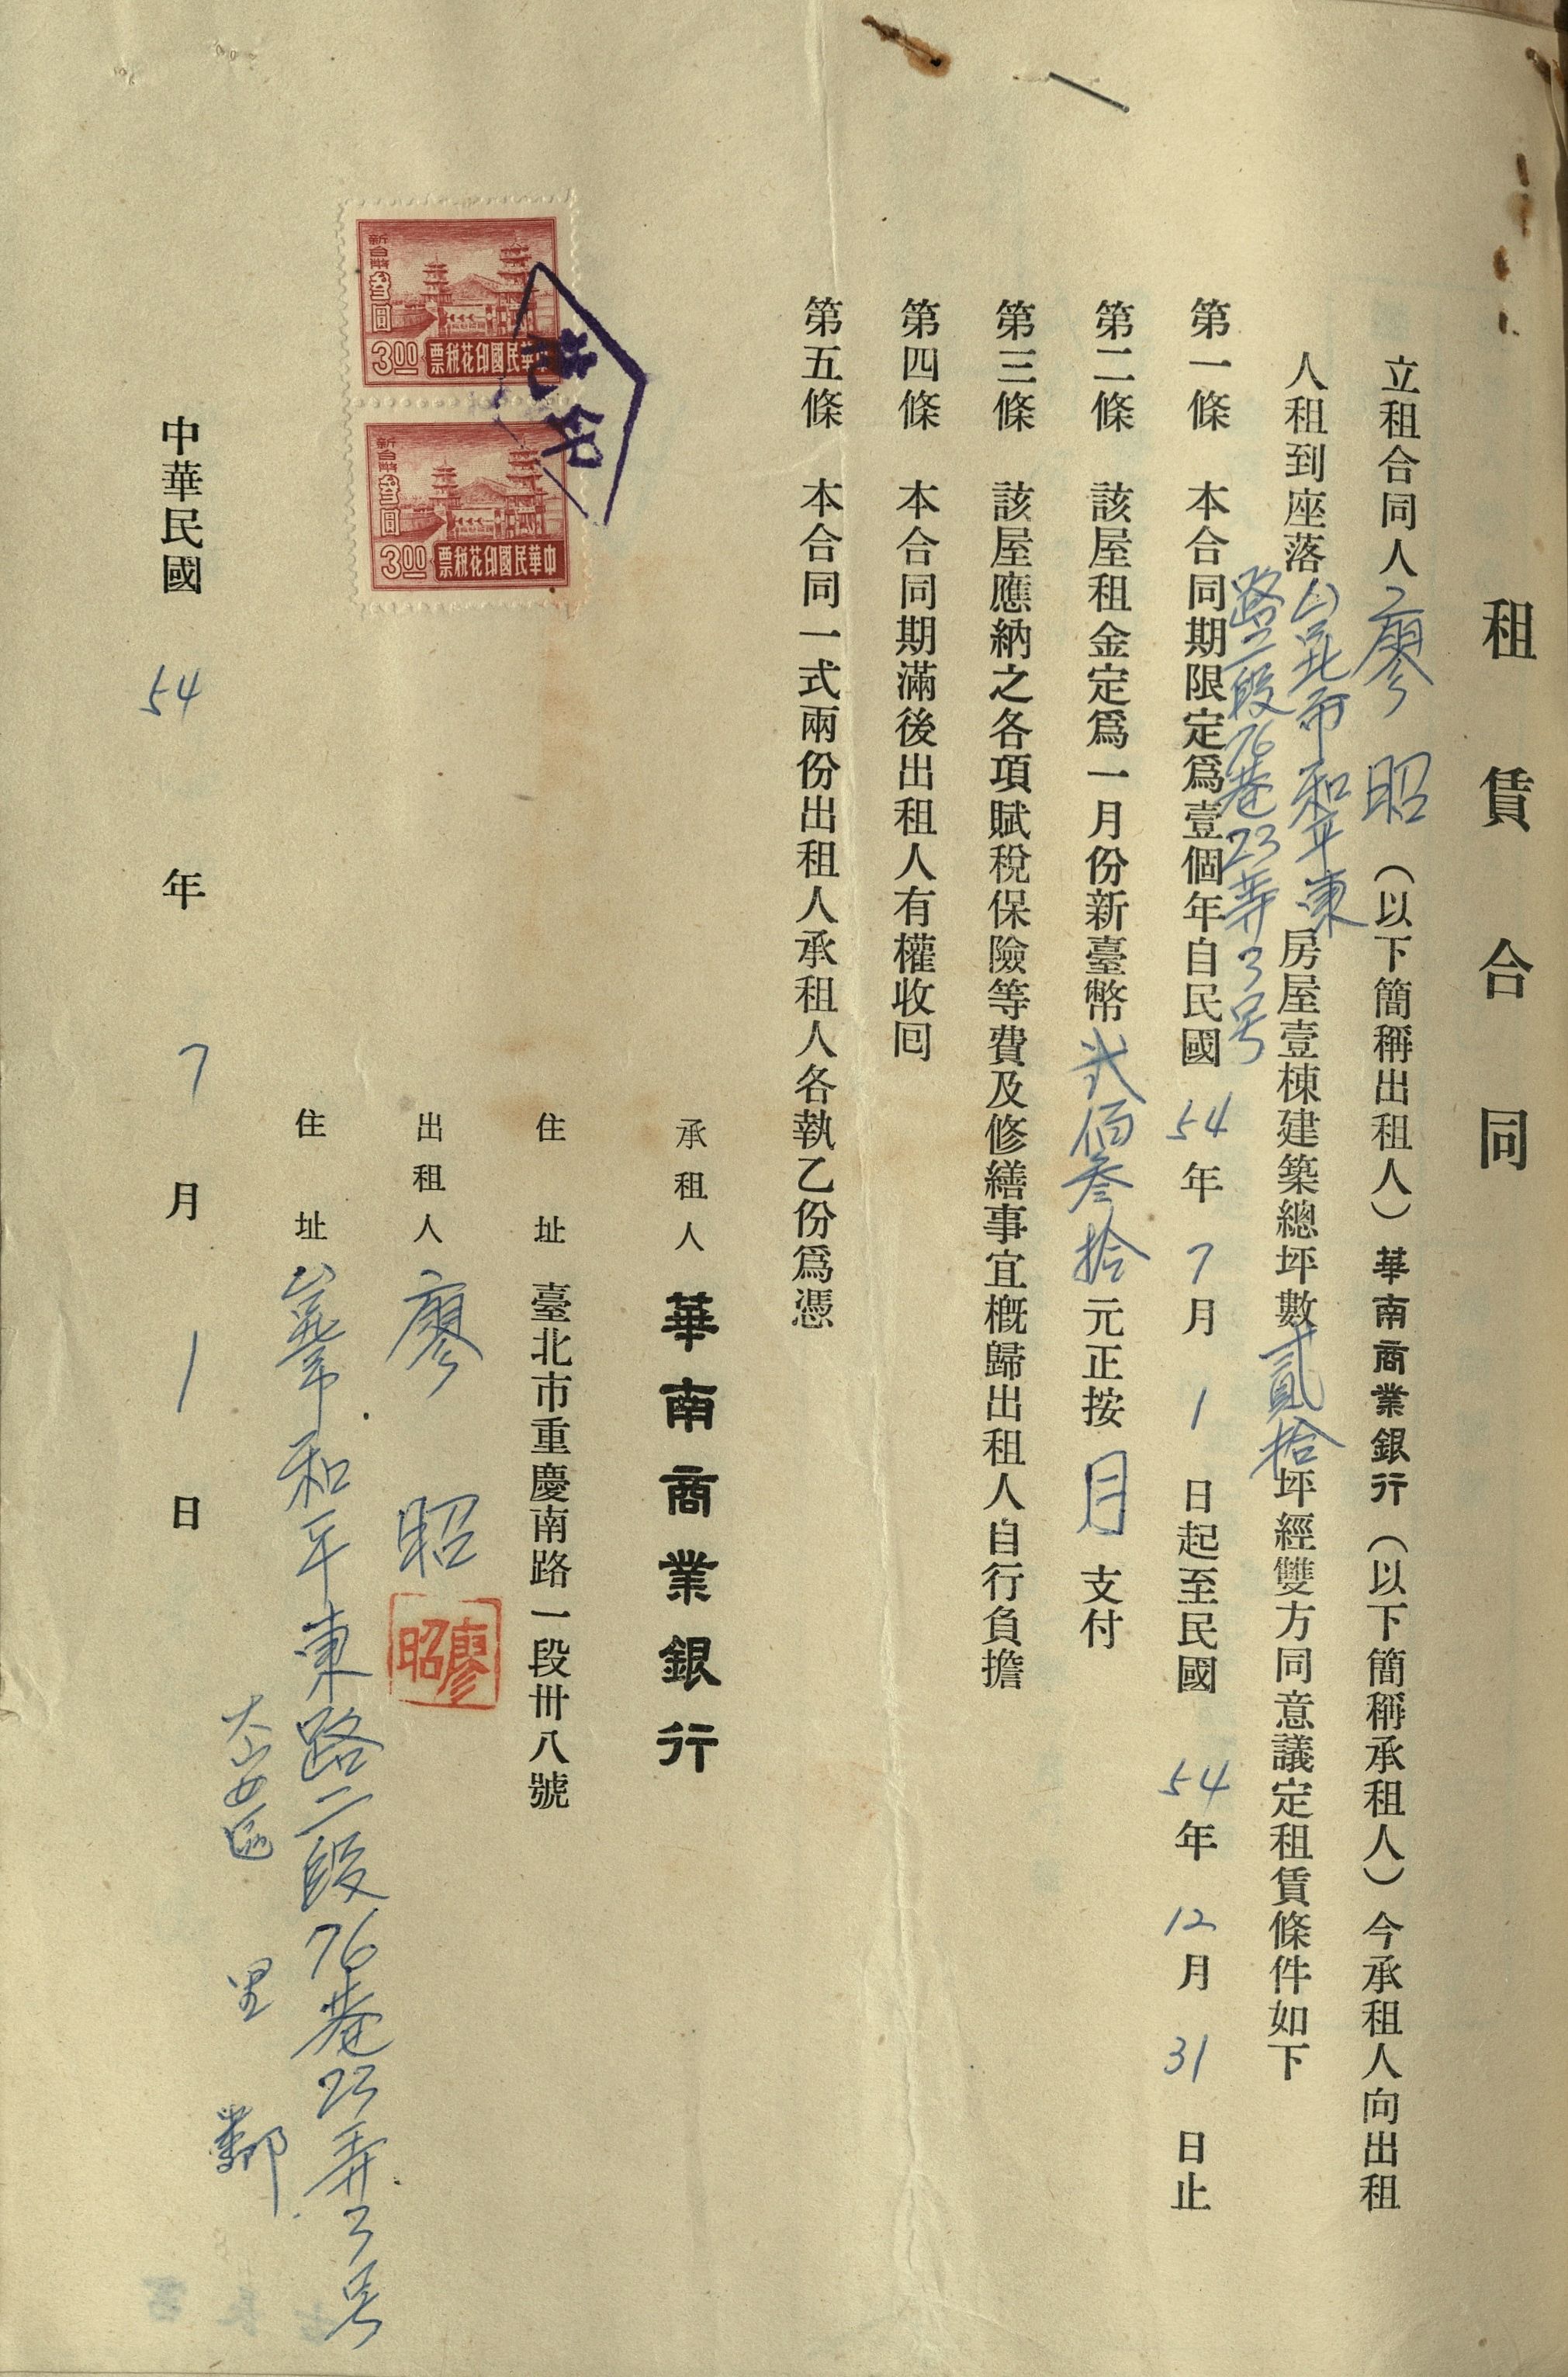 租賃合同
立租合同人廖昭（以下簡稱出租人）華南商業銀行（以下簡稱承租人）今承租人向出租
人租到座落台北市和平東路二段76巷23弄3号房屋壹棟建築總坪數貳拾坪經雙方同意議定租賃條件如下
第一條　本合同期限定爲壹個年自民國54年7月1日起至民國54年12月31日止
第二條　該屋租金定爲一月份新臺幣弍佰叁拾元正按月支付
第三條　該屋應納之各項賦稅保險等費及修繕事宜槪歸出租人自行負擔
第四條　本合同期滿後出租人有權收囘
第五條　本合同一式兩份出租人承租人各執乙份爲憑
承租人　華南商業銀行
住址　臺北市重慶南路一段卅八號
出租人　廖昭
廖昭
住址　台北市和平東路二段76巷23弄3号
大安區　里　鄰
中華民國54年7月1日
新台幣叁圓
3.00
中華民國印花稅票
新台幣叁圓
3.00
中華民國印花稅票